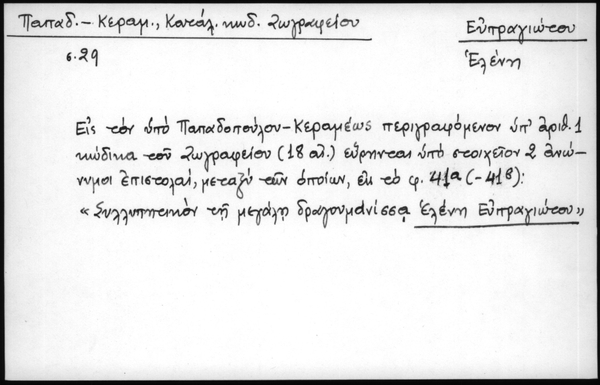 Παπαδ.-Κεραμ., Κατάλ. κωδ. Ζωγραφείου
Εὐπραγιώτου
σ. 29
Ἑλένη
Εἰς τὸν ὑπὸ Παπαδοπούλου-Κεραμέως περιγραφόμενον ὑπ' ἀριθ. 1
κώδικα τοῦ Ζωγραφείου (18 αἰ.) εὕρηνται ὑπὸ στοιχεῖον 2 ἀνώ-
νυμοι ἐπιστολαί, μεταξὺ τῶν ὁποίων, εἰς τὸ φ. 41α (-41β):
«Συλλυπητικὸν τῇ μεγάλῃ δραγουμανίσσᾳ Ἑλένῃ Εὐπραγιώτου»